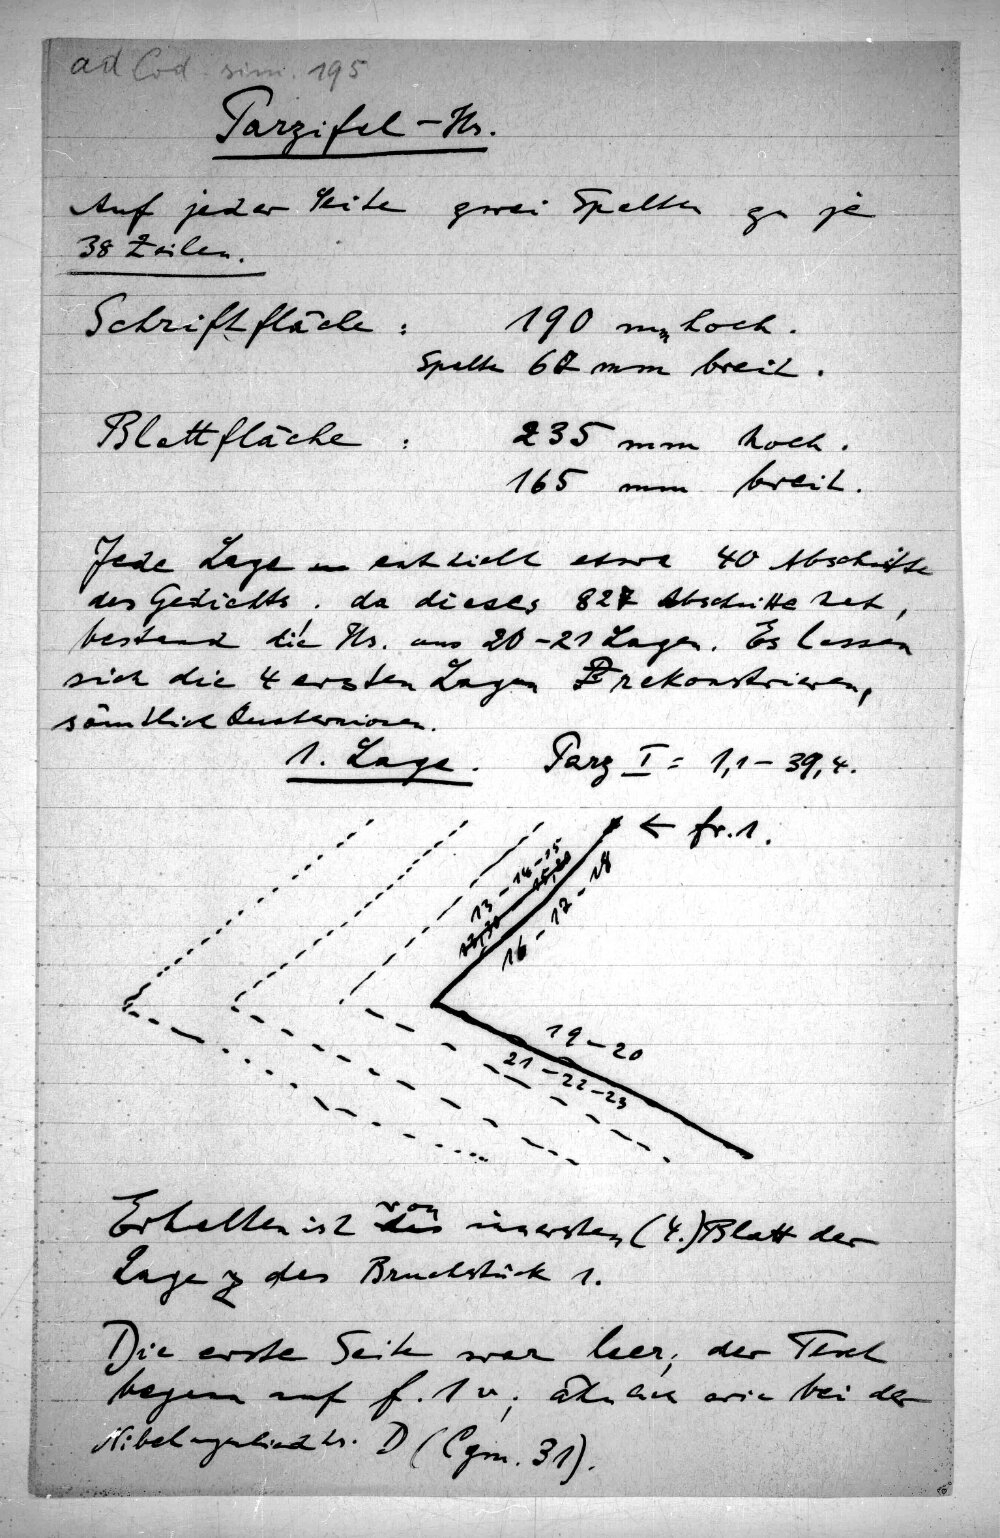 ad Cod. sim. 195
Parzifal-Hs.
Auf jeder Seite zwei Spalten zu je
38 Zeilen.
Schriftfläche : 190 mm hoch.
Spalte 67 mm breit.
Blattfläche : 235 mm hoch.
165 mm breit.
Jede Lage enthielt etwa 40 Abschnitte
des Gedichts. da dieses 827 Abschnitte hat,
bestand die Hs. aus 20-21 Lagen. Es lassen
sich die 4 ersten Lagen rekonstruieren,
sämtlich Quaternionen.
1. Lage. Parz I = 1,1 - 39,4.
← fr. 1.
13 - 14 - 15
16 - 17 - 18
19 - 20
21 - 22 - 23
Erhalten ist von innersten (4.) Blatt der
Lage das Bruchstück 1.
Die erste Seite war leer; der Text
begann auf f. 1v; ähnlich wie bei der
Nibelungenliedhs. D (Cgm. 31).